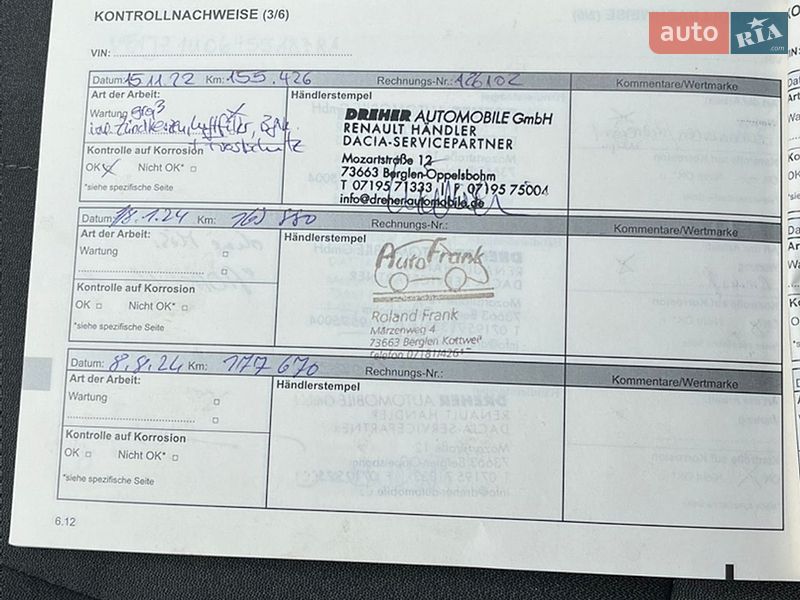 KONTROLLNACHWEISE (3/6)
auto RIA .com
VIN:
Datum: 15.11.22 Km: 155.426 Rechnungs-Nr.: 126102 Kommentare/Wertmarke
Art der Arbeit: Händlerstempel
Wartung
inkl. Zündkerzen, Luftfilter,
+ Frostschutz
Kontrolle auf Korrosion
OK Nicht OK*
*siehe spezifische Seite
DREHER AUTOMOBILE GmbH
RENAULT HÄNDLER
DACIA-SERVICEPARTNER
Mozartstraße 12
73663 Berglen-Oppelsbohm
T 07195 71333 F 07195 75004
info@dreherautomobile.de
Datum: 18.1.24 Km: Rechnungs-Nr.: Kommentare/Wertmarke
Art der Arbeit: Händlerstempel
Wartung
Kontrolle auf Korrosion
OK Nicht OK*
*siehe spezifische Seite
Auto Frank
Roland Frank
Märzenweg 4
73663 Berglen Kottwei
Telefon 07181/4261
Datum: 8.8.24 Km: 177 670 Rechnungs-Nr.: Kommentare/Wertmarke
Art der Arbeit: Händlerstempel
Wartung
Kontrolle auf Korrosion
OK Nicht OK*
*siehe spezifische Seite
6.12